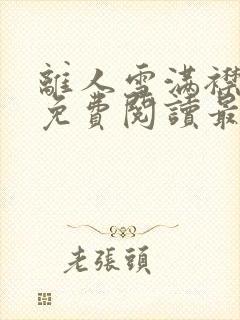 離人雪滿襟
免費閱讀最
老張頭